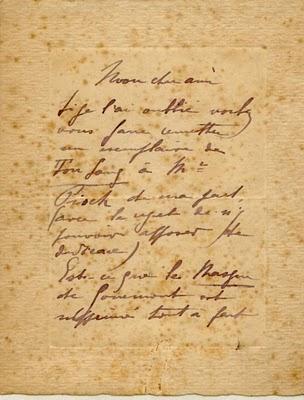 Mon cher ami
Si je l'ai oublié voulez
vous faire remettre
un exemplaire de
Ton Sang à Mr
Pioch de ma part.
(avec le regret de n'y
pouvoir apposer de
dédicace)
Est-ce que le Masque
de Gourmont est
supprimé tout à fait